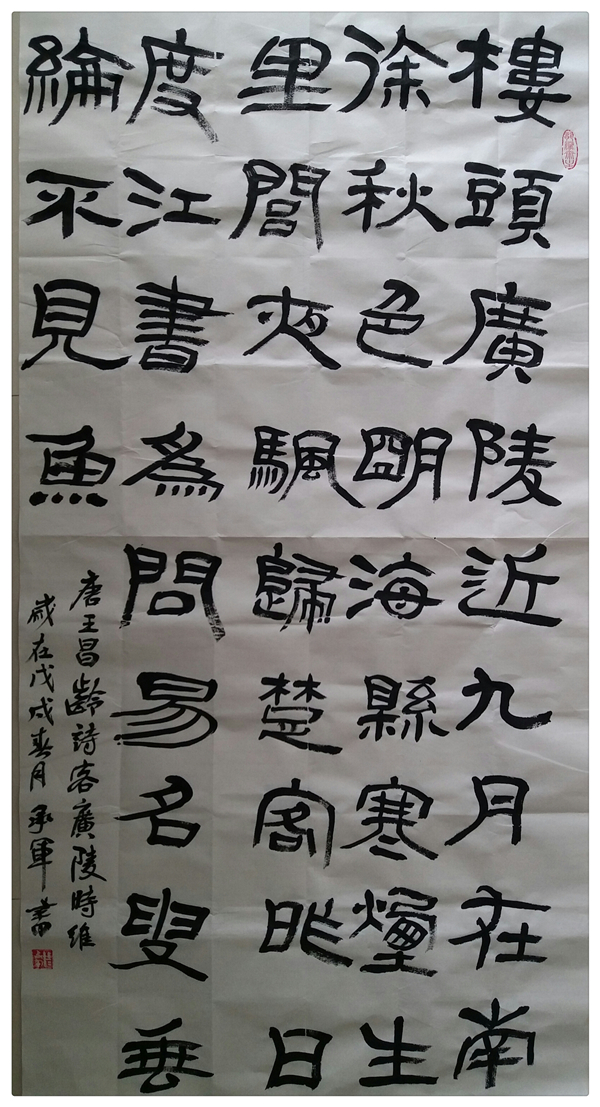 樓頭廣陵近九月在南
徐秋色朙海縣寒煙生
里閭夜颿歸楚客昨日
度江書為問易名叟垂
綸不見魚
唐王昌齡詩客廣陵時維
歲在戊戌春月承軍書